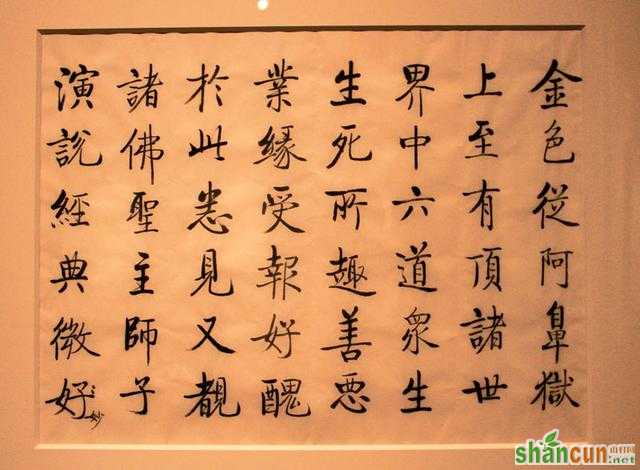 金色從阿鼻獄
上至有頂諸世
界中六道衆生
生死所趣善惡
業緣受報好醜
於此悉見又覩
諸佛聖主師子
演說經典微好
妙
shancun
.net